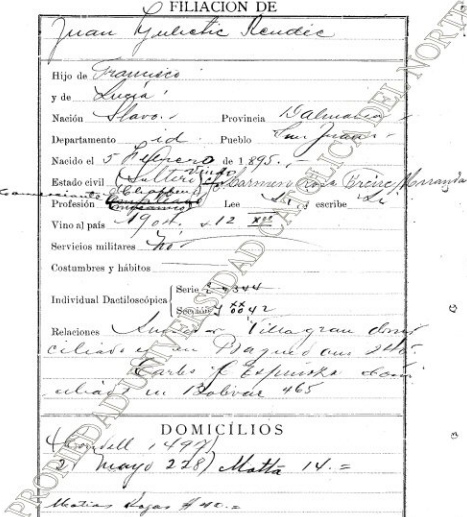 FILIACION DE
Juan Yulictic Rendic
Hijo de Francisco
y de Lucía
Nación Slavo.- Provincia Dalmacia
Departamento id. Pueblo San Juan
Nacido el 5 Febrero de 1895.-
Estado civil Soltero Viudo Carmen Rosa Freire Miranda
Comerciante Chauffeur
Profesión Lee Si escribe Si
Vino al país 1904
Servicios militares No
Costumbres y hábitos
Serie
Individual Dactiloscópica
Sección
Relaciones Villagran domi
ciliado en Baquedano
Carlos Espinoza domi
ciliado en Bolivar 465
DOMICILIOS
Condell 1497)
21 Mayo 228) Matta 14.=
Matias Rojas # 40.=
PROPIEDAD UNIVERSIDAD CATOLICA DEL NORTE